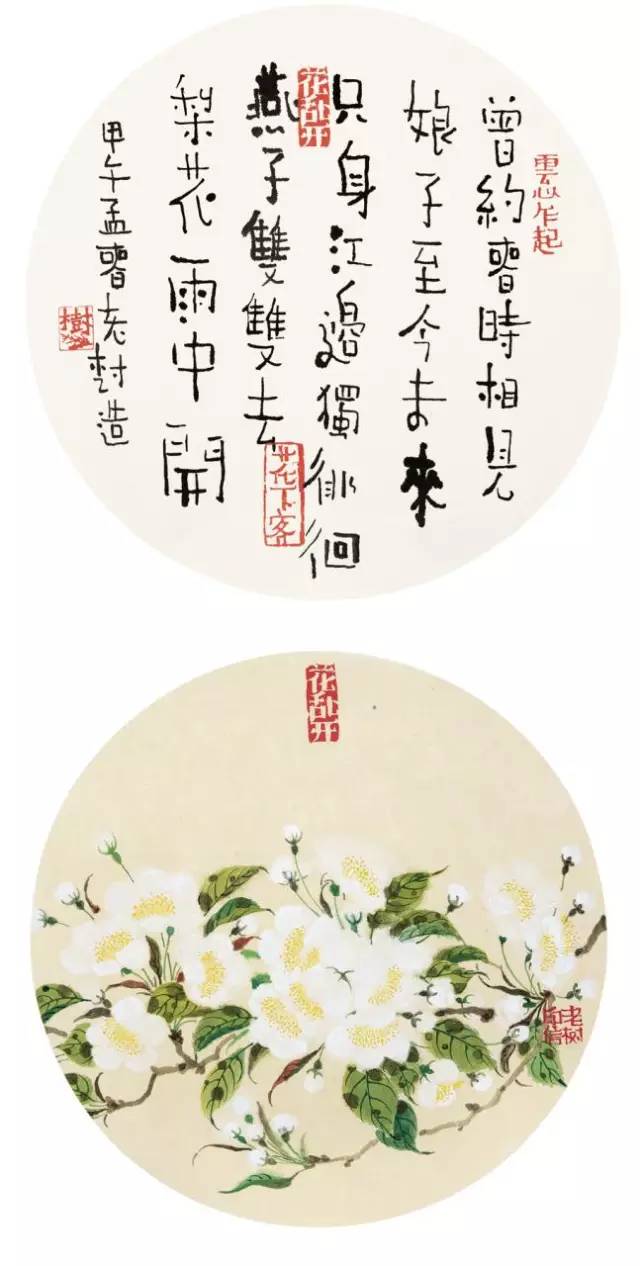 曾約春時相見
娘子至今未來
只身江邊獨徘徊
燕子雙雙去
梨花雨中開
甲午孟春老樹造
雲心乍起
花乱开
花下客
樹
花乱开
老树